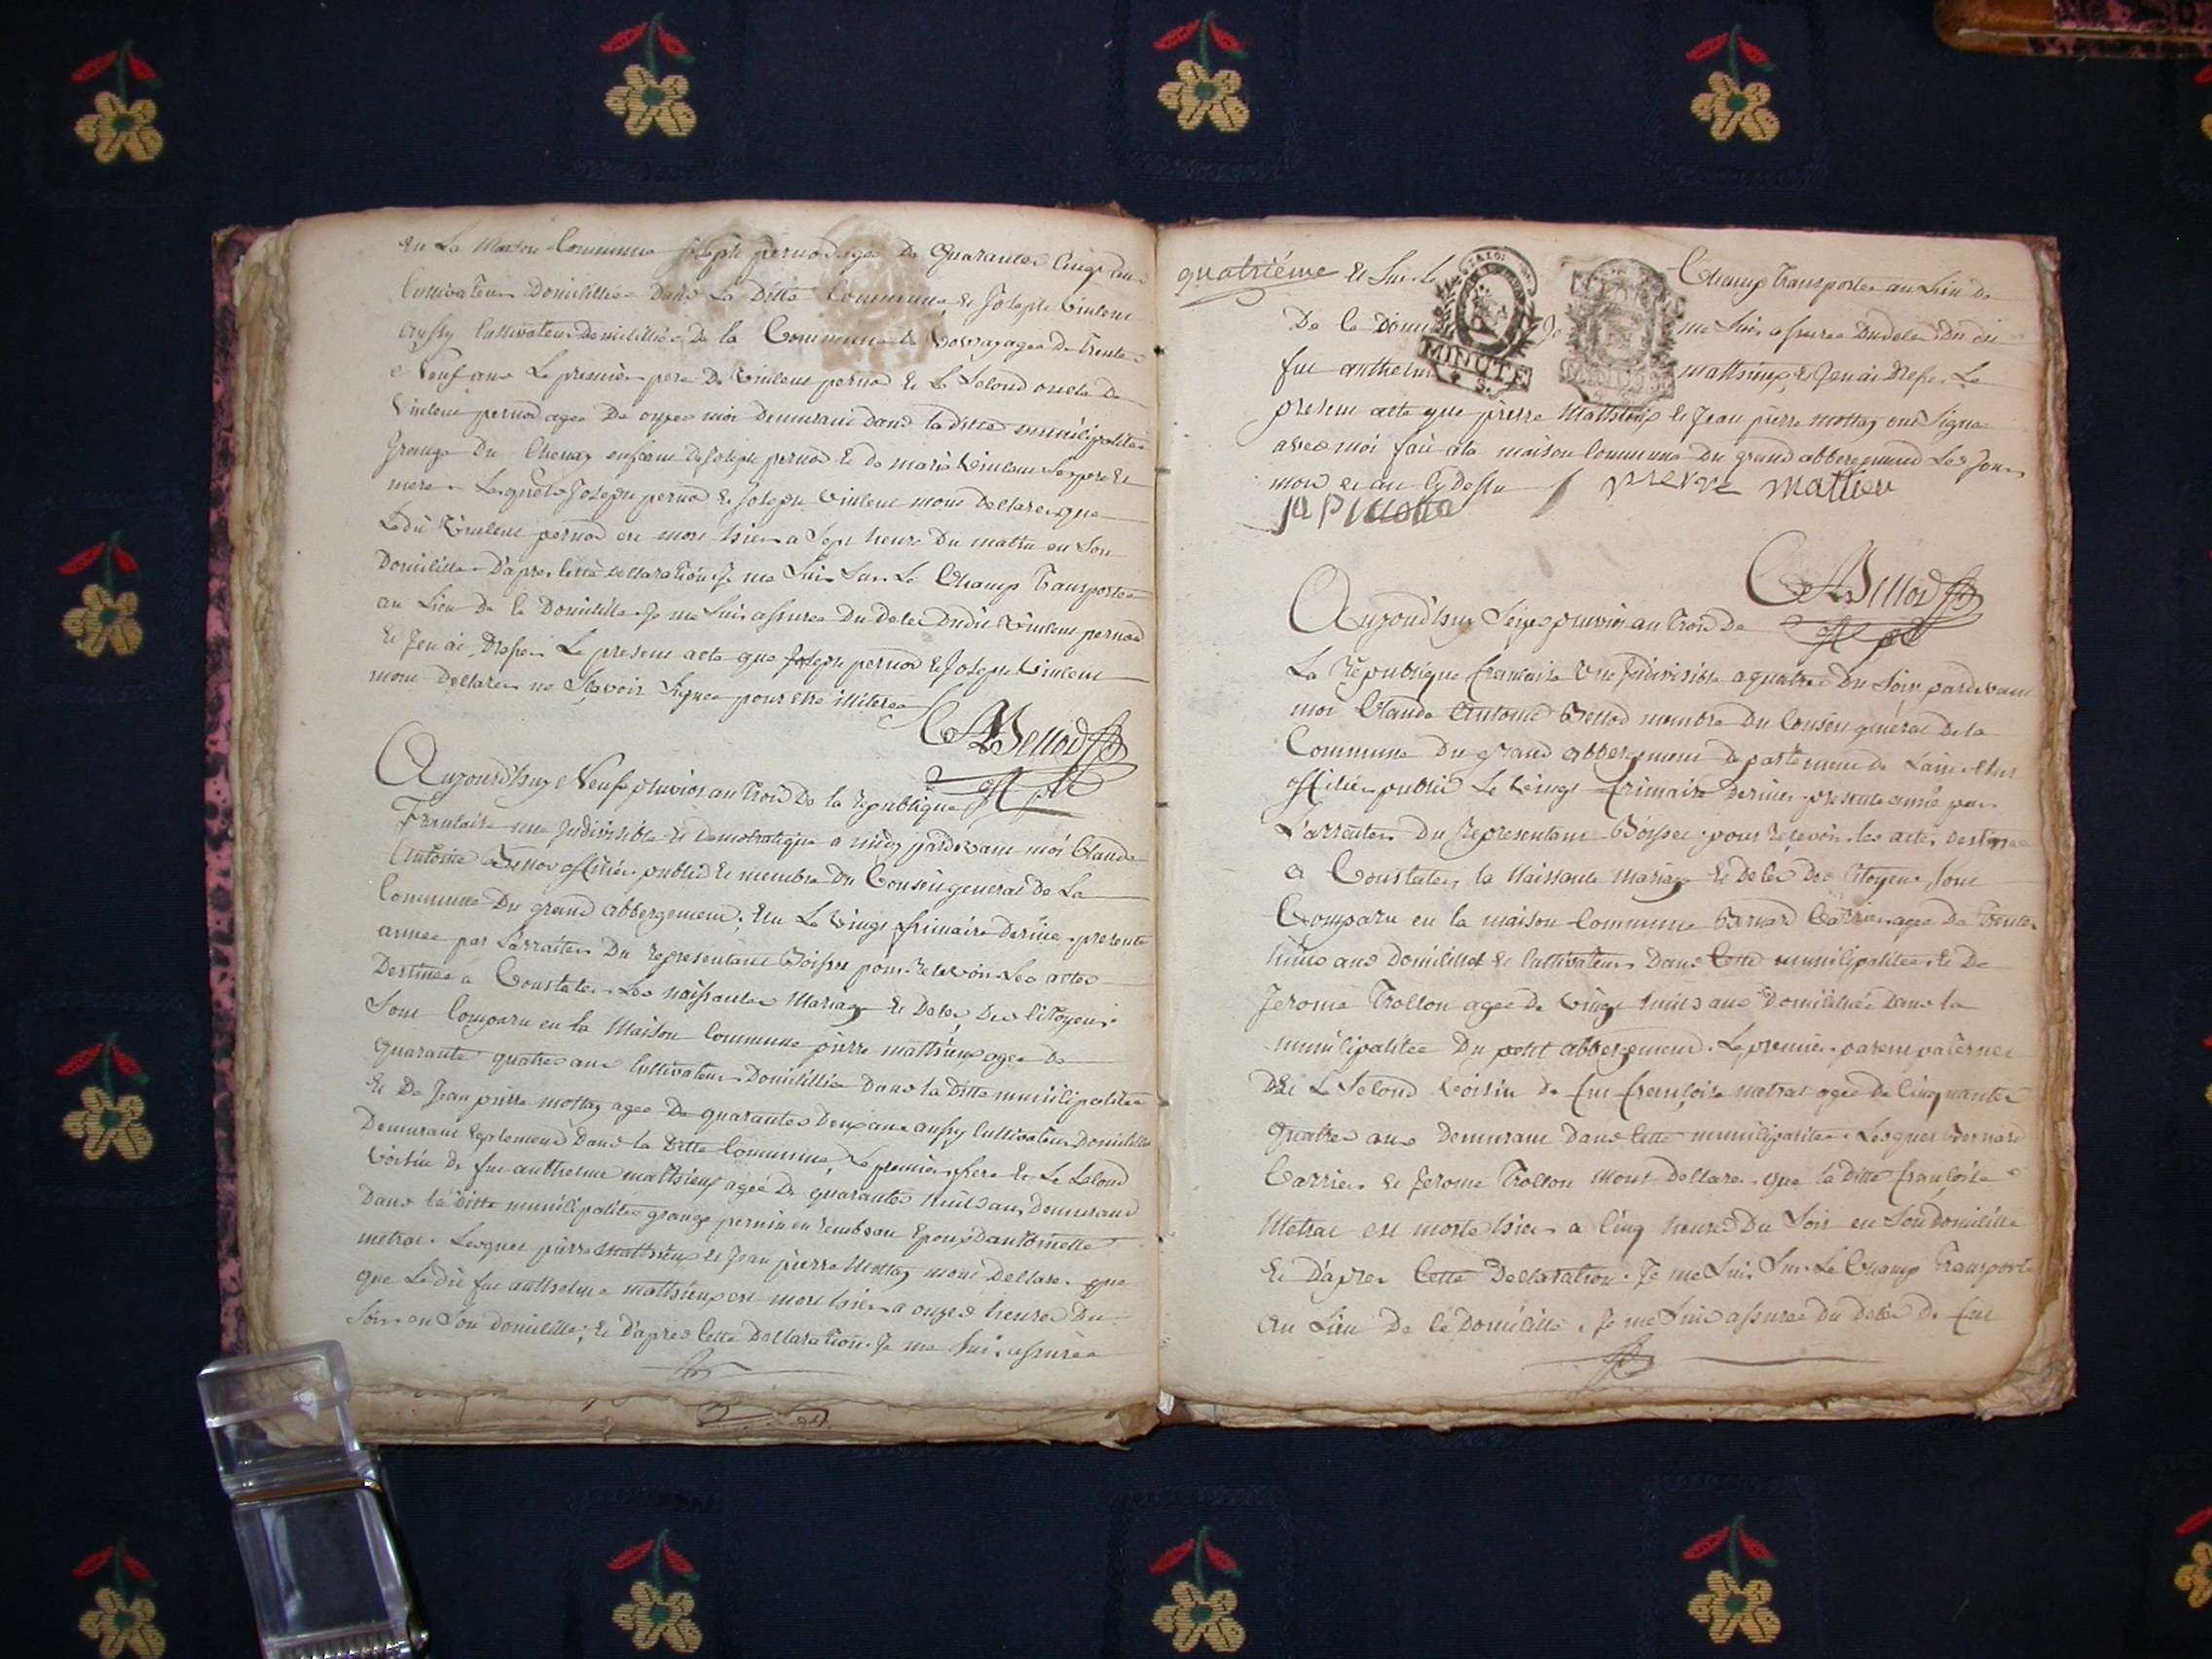 en La Maison Commune Joseph pernod agee De Quarantes Cinq ans
Cultivateur Domicilliée Dans La Ditte Commune, et Joseph Vinlent
aussy Cultivateur Domicilliée De la Commune de agee De trente
Neuf ans Le premier pere De Vinlent pernod et Le Second oncle De
Vinlent pernod agee De onzes moi Demurant Dans la ditte municipalitée
Grange Du Chenay enfant De Joseph pernod et de marie Vinlent Ses pere et
mere. Lesquels Joseph pernod & Joseph Vinlent mont Dellare que
Ledit Vinlent pernod est mort hier a Sept heure Du mattin en Son
Domicille D'apres Cette Dellaration Je me Suis Sur Le Champ Transportée
au Lieu De Le Domicille Je me Suis assuree Du Dele Dudit Vinlent pernod
et Jen ai Dressé Le present acte que Joseph pernod & Joseph Vinlent
mont Dellare ne Sçavoir Signer pour etre illiteree
CABellod
Aujourd'huy Neuf pluvios an Trois De la republique
Franlaise une Indivisible et Democratique a midy pardevant moi Claude
Antoine Bellod offilier public et membre Du Conseil general De La
Commune Du grand abbergement, Elu Le Vingt frimaire Dernier presente
annee par L'arraiter Du representant Boisset pour relevoir Les actes
Destinée a Constater Les naissantes Mariage et Deler Des Citoyens
Sont Comparu en la Maison Commune pierre mattieux agee de
quarante quatres ans Cultivateur Domicilliée Dans la Ditte municipalitée
et De Jean pierre mottaz agee De quarantes Deux ans aussy Cultivateur Domicillée
Demurant Egalement Dans la Ditte Commune, Le premier frere et Le Second
Voisin de fut anthelme matthieux agée De quarantes huit ans Demurant
Dans la Ditte municipalitée grange pernin en Epoux Dantoinette
metral. Lesquel pierre matthieux & Jean pierre Mottaz mont Dellare que
que Ledit fut anthelme matthieux est mort hier a onzes heures Du
Soir en Son Domicille; et D'apres Cette Dellaration Je me Suis assurée
quatriéme et Sur Le Champ transportée au Lieu De
De Le Domi Je me Suis assuree Du deler Du di
fut anthelm matthieux, & Jen ai Dresse Le
present acte que pierre Matthieux & Jean pierre mottaz ont Signee
avec moi fait a la maison Commune Du grand abbergement Les Jour
mois et an Cy Dessu pierre mattieu
CABellod
Aujourd'huy Seize pluvios an trois De
La Republique francaise Une Indivisible a quatre Du Soir pardevant
moi Claude Antoine Bellod membre Du Conseil general De la
Commune Du grand abbergement Departement de Lain Elu
offilier public Le vingt frimaire Dernier presente année par
L'arreter Du Representant Boisset pour recevoir les actes Destinee
a Constater la Naissante Mariage et Deler Des Citoyens Sont
Comparu en la maison Commune Bernard Carrier agee De trente
huit ans Domicillié et Cultivateur Dans Cette municipalitée et De
Jerome Trollon agee de Vingt huit ans Domiciliée Dans la
municipalitée Du petit abbergement. Le premier parent paternel
Et Le Second Voisin de fut françoise metral agée de Cinquantes
quatres ans Demurant Dans Cette municipalitée. Lesquel Bernard
Carrier & Jerome Trollon Mont Dellare que la ditte françoise
Metral est morte hier a Cinq heures Du Soir en Son Domicille
et D'apres Cette Declaration. Je me Suis Sur Le Champ Transporté
au Lieu De Le Domicille. Je me Suis assuree Du Deler De fut